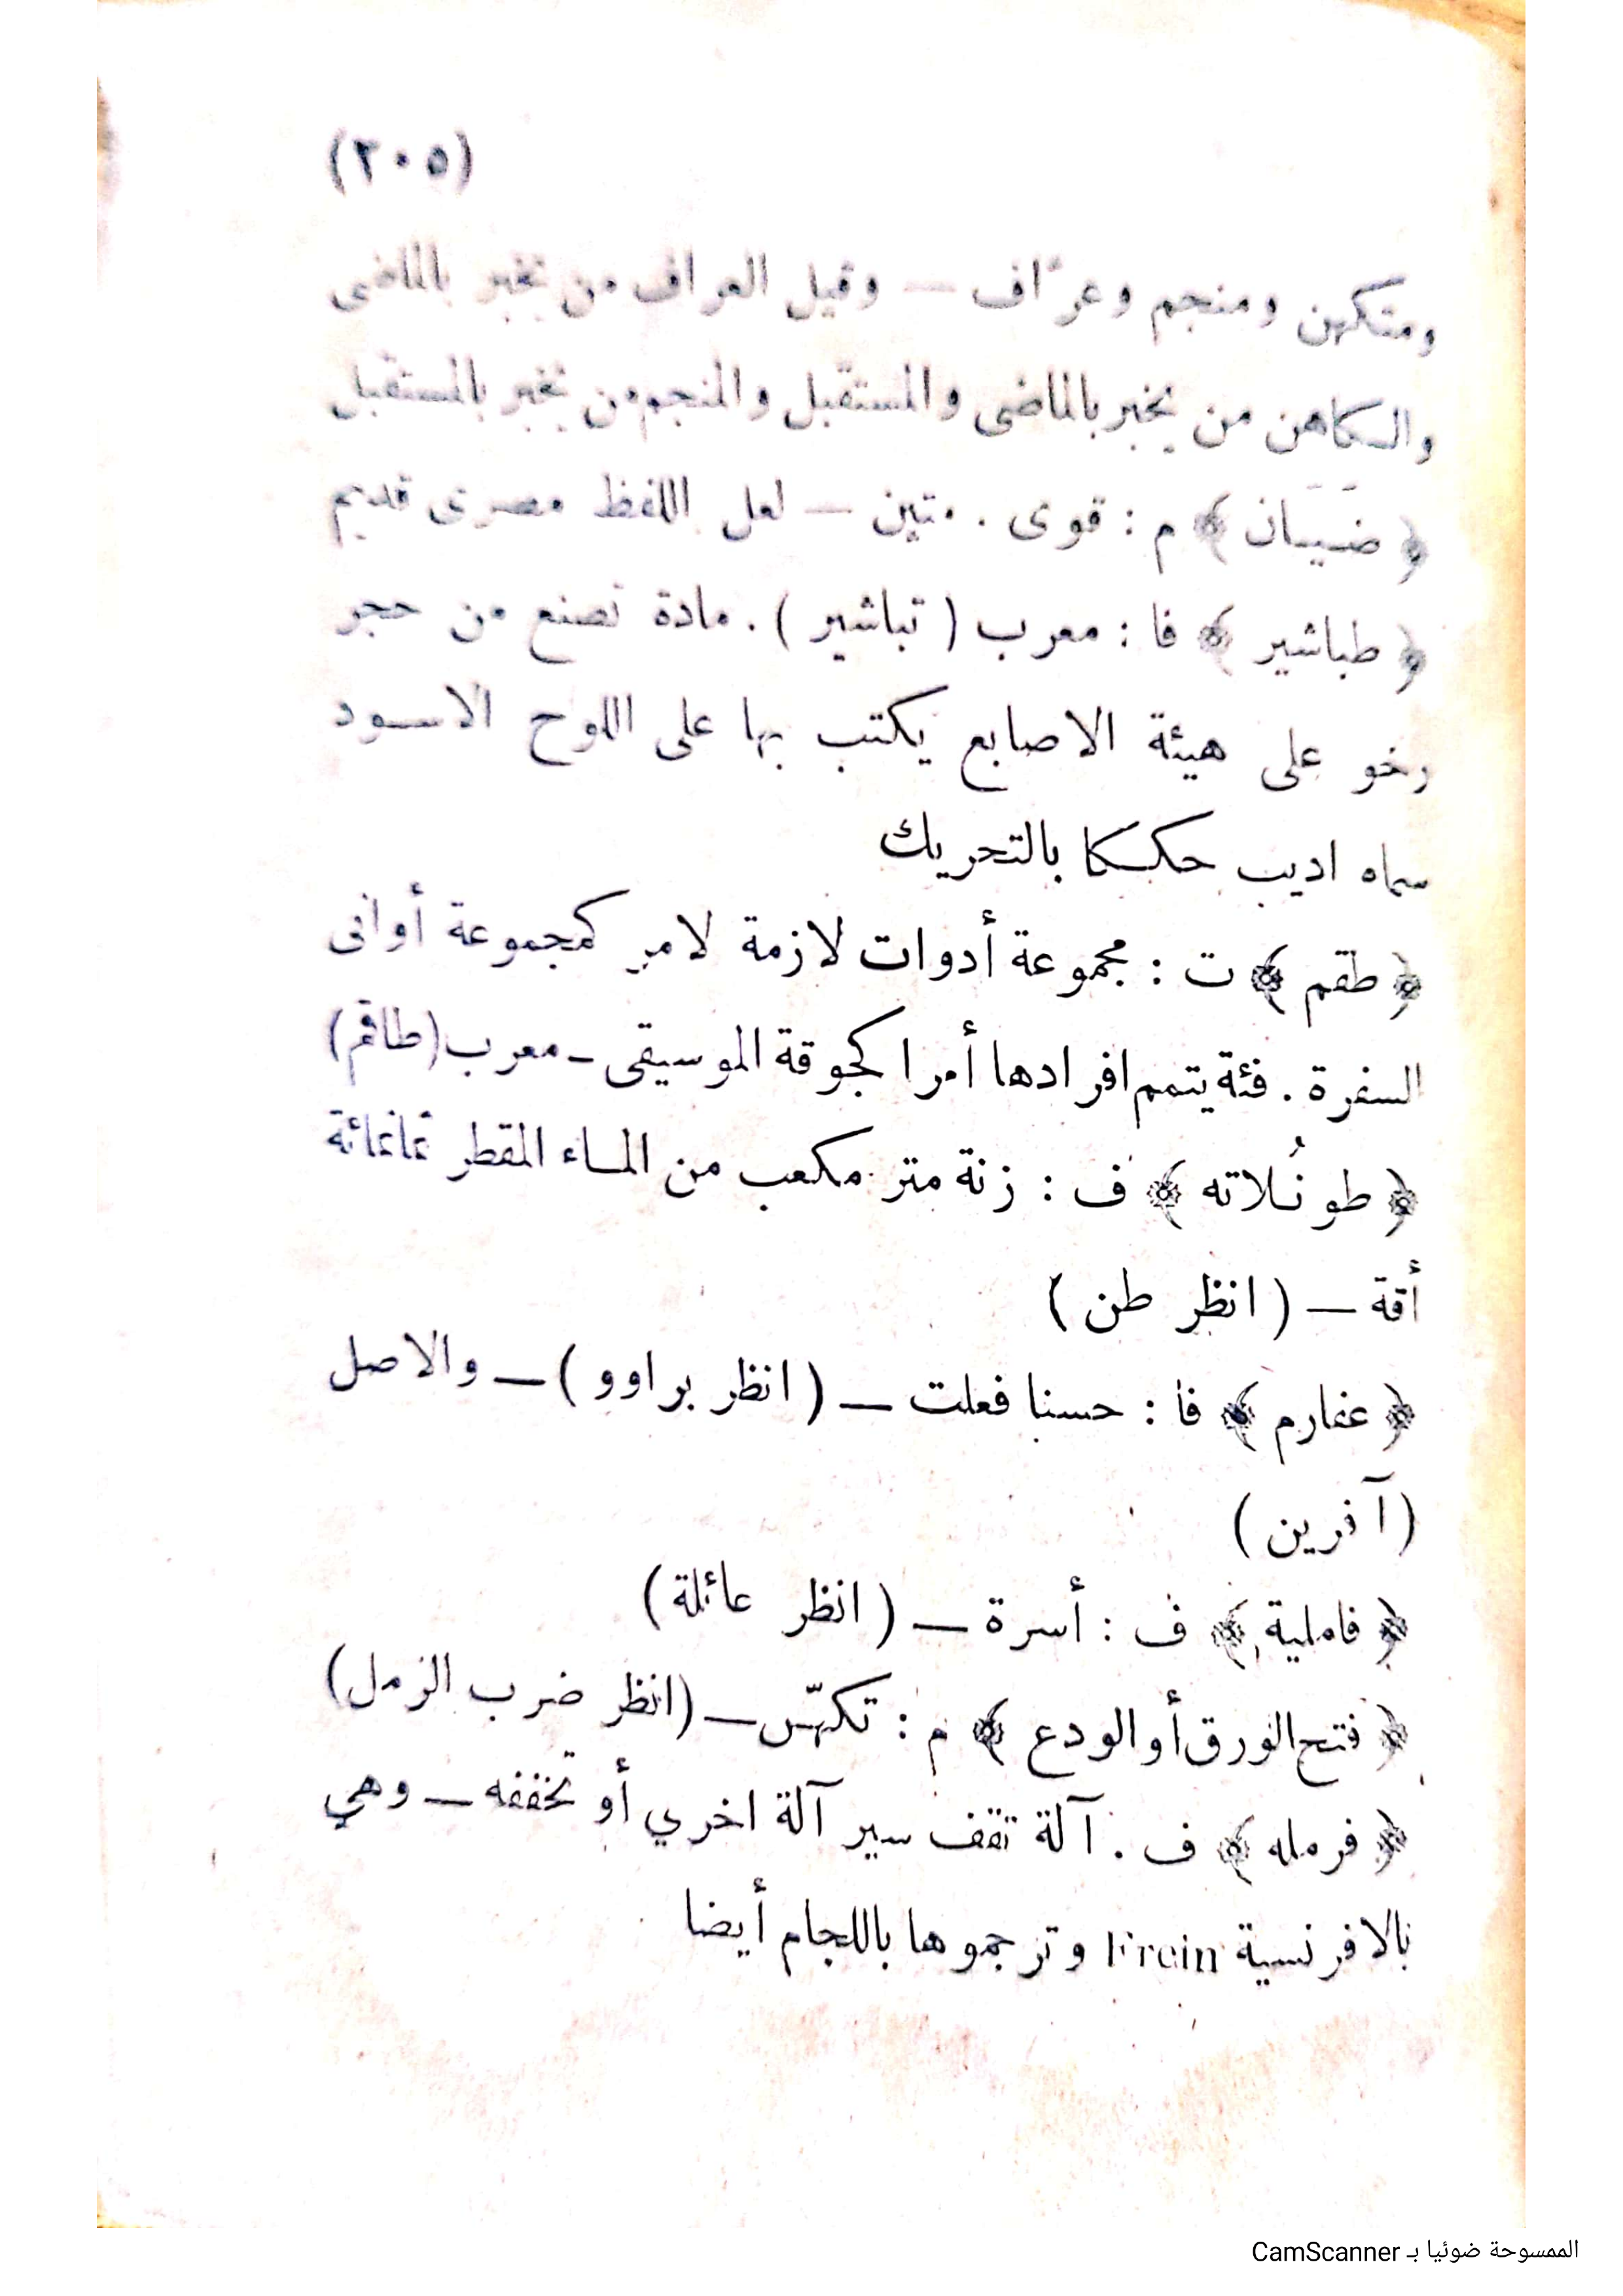 (٢٠٥)
ومتكهن ومنجم وعرّاف — وقيل العراف من يخبر بالماضى
والكاهن من يخبر بالماضى والمستقبل والمنجم من يخبر بالمستقبل
﴿ ضَيَان ﴾ م : قوى . متين — لعل اللفظ مصرى قديم
﴿ طباشير ﴾ فا : معرب ( تباشير ) . مادة تصنع من حجر
رخو على هيئة الاصابع يكتب بها على اللوح الاسود
سماه اديب حككا بالتحريك
﴿ طقم ﴾ ت : مجموعة أدوات لازمة لامر كمجموعة أوانى
السفرة . فئة يتمم افرادها أمرا كجوقة الموسيقى — معرب (طاقم)
﴿ طونُلاته ﴾ ف : زنة متر مكعب من الماء المقطر ثمانمائة
أقة — ( انظر طن )
﴿ عفارم ﴾ فا : حسنا فعلت — ( انظر براوو ) — والاصل
( آفرين )
﴿ فاملية ﴾ ف : أسرة — ( انظر عائلة )
﴿ فتح الورق أو الودع ﴾ م : تكهّن — (انظر ضرب الرمل)
﴿ فرمله ﴾ ف . آلة تقف سير آلة اخري أو تخففه — وهي
بالافرنسية Frein وترجموها باللجام أيضا
الممسوحة ضوئيا بـ CamScanner